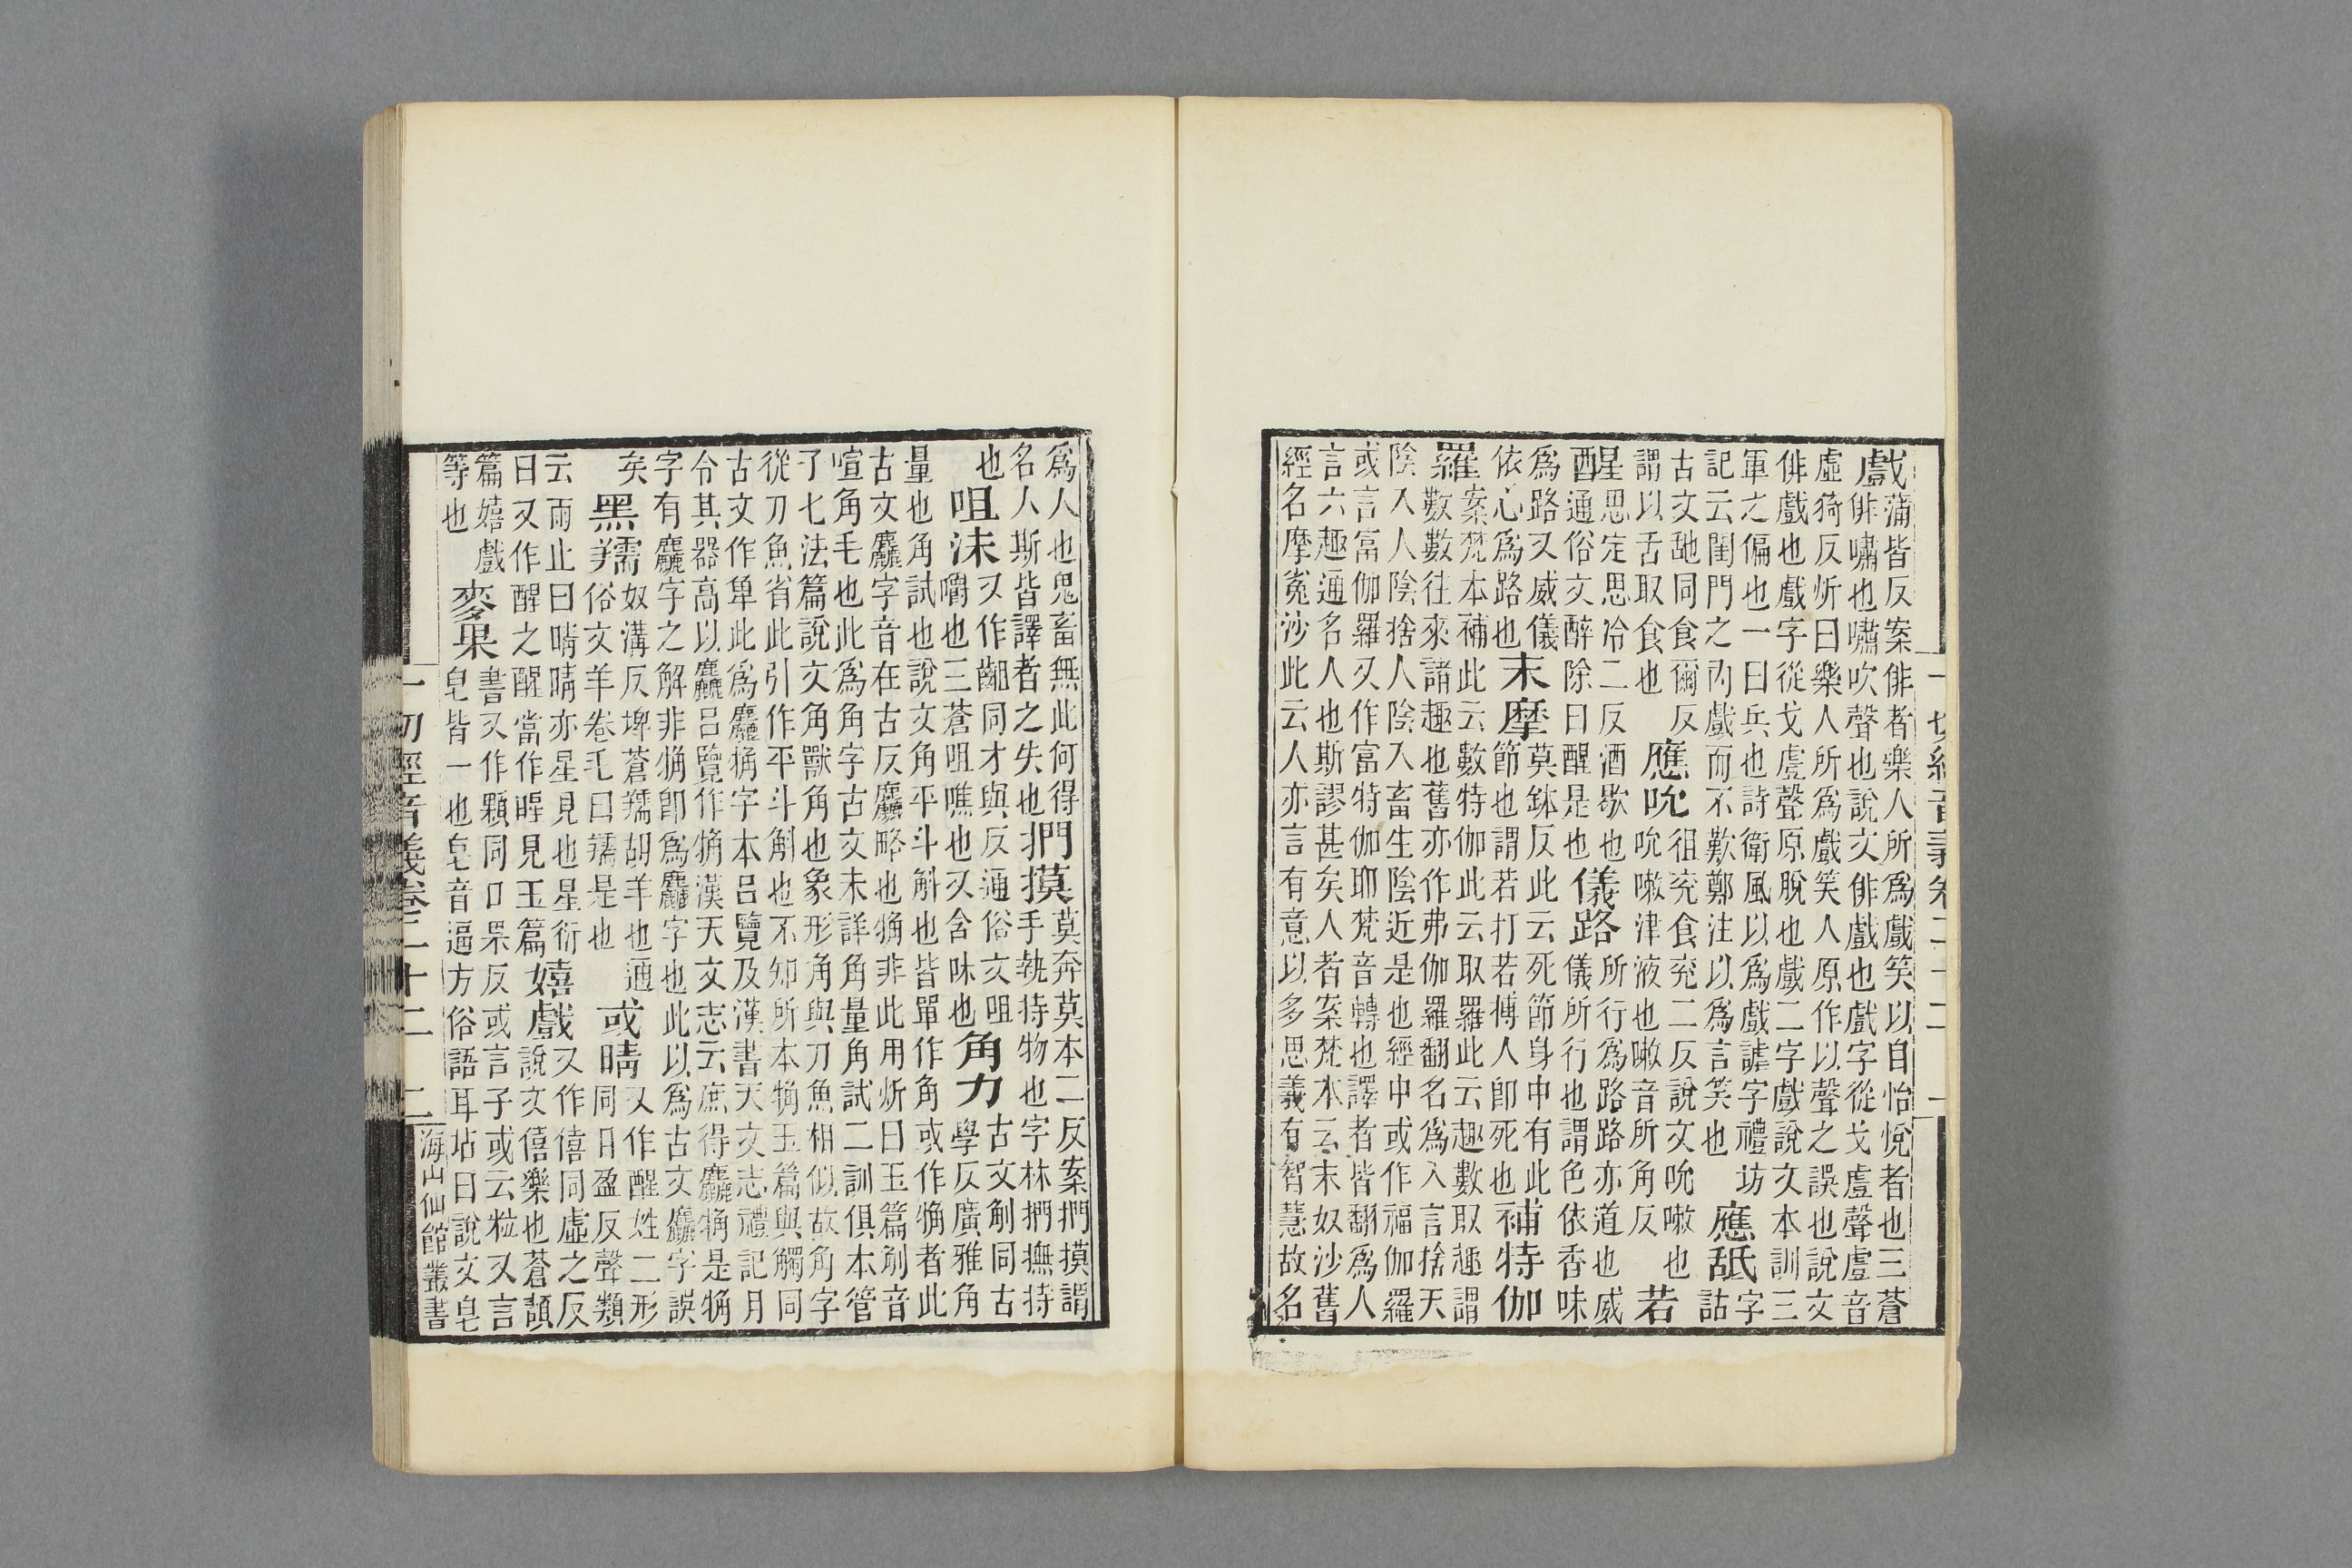 一切經音義卷二十二 一
戲
蒲皆反案俳者樂人所為戲笑以自怡悅者也三蒼
俳嘯也嘯吹聲也說文俳戲也戲字從戈䖒聲䖒音
虛猗反炘曰樂人所為戲笑人原作以聲之誤也說文
俳戲也戲字從戈䖒聲原脫也戲二字戲說文本訓三
軍之偏也一曰兵也詩衛風以為戲謔字禮坊
記云閨門之內戲而不歎鄭注以為言笑也
應舐
字
詁
古文䑛同食爾反
謂以舌取食也
應吮
徂兗食兗二反說文吮嗽也
吮嗽津液也嗽音所角反
若
醒
思定思冷二反酒歇也
通俗文醉除曰醒是也
儀路
所行為路路亦道也威
儀所行也謂色依香味
為路又威儀
依心為路也
末摩
莫鉢反此云死節身中有此
節也謂若打若搏人即死也
補特伽
羅
案梵本補此云數特伽此云取羅此云趣數取趣謂
數數往來諸趣也舊亦作弗伽羅翻名為入言捨天
陰入人陰捨人陰入畜生陰近是也經中或作福伽羅
或言富伽羅又作富特伽耶梵音轉也譯者皆翻為人
言六趣通名人也斯謬甚矣人者案梵本云末奴沙舊
經名摩㝹沙此云人亦言有意以多思義有智慧故名
為人也鬼畜無此何得
名人斯皆譯者之失也
捫摸
莫奔莫本二反案捫摸謂
手執持物也字林捫撫持
也
咀沬
又作齟同才與反通俗文咀
嚼也三蒼咀噍也又含味也
角力
古文𧣪同古
學反廣雅角
量也角試也說文角平斗斛也皆單作角或作觕者此
古文麤字音在古反麤略也觕非此用炘曰玉篇𧣪音
喧角毛也此為角字古文未詳角量角試二訓俱本管
子七法篇說文角獸角也象形角與刀魚相似故角字
從刀魚省此引作平斗斛也不知所本觕玉篇與觸同
古文作單此為麤觕字本呂覽及漢書天文志禮記月
令其器高以麤呂覽作觕漢天文志云庶得麤觕是觕
字有麤字之解非觕即為麤字也此以為古文麤字誤
矣
黑羺
奴溝反埤蒼羺胡羊也通
俗文羊卷毛曰羺是也
或晴
又作暒姓二形
同自盈反聲類
云雨止曰晴晴亦星見也星衍
曰又作暒之暒當作暒見玉篇
嬉戲
又作僖同虛之反
說文僖樂也蒼頡
篇嬉戲
等也
麥果
書又作顆同口杲反或言子或云粒又言
皂皆一也皂音逼方俗語耳坫曰說文皂
一切經音義卷二十二 二
海山仙館叢書